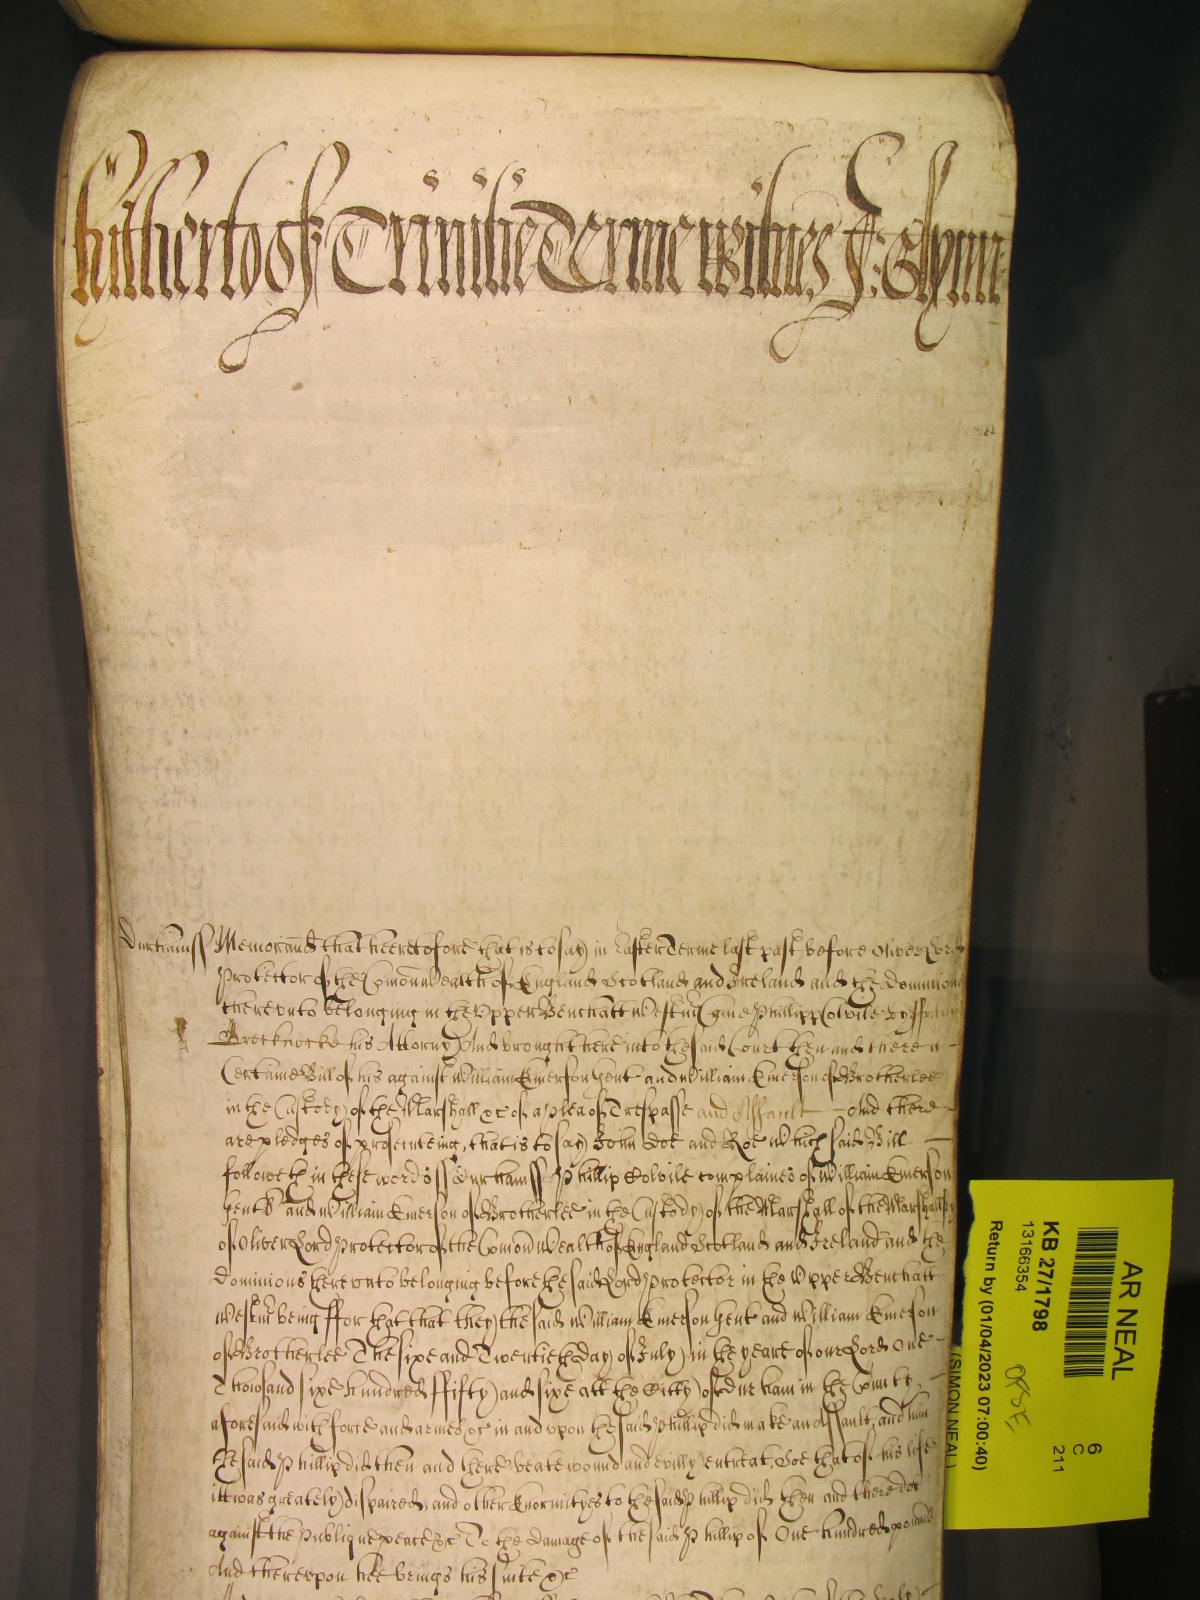 hitherto of Trinitie Terme witnes J: Glynn
Durham ss Memorand that heeretofore that is to say in Easter Terme last past before Oliver Lord
Protector of the Comonwealth of England Scotland and Ireland and the Dominions
thereunto belonging in the Upper Bench att Westmr Came Phillipp Colvile by
Brecknocke his Attorny And brought here into the said Court then and there a
Certaine Bill of his against William Emerson gent and William Emerson of Brotherlee
in the Custody of the Marshall &c of a plea of Trespasse and Assault And there
are pledges of prosecuteing, that is to say John Doe and Roe Which said Bill
followeth in these words ss Durham ss Phillip Colvile complaines of William Emerson
gent and William Emerson of Brotherlee in the Custody of the Marshall of the Marshalsey
of Oliver Lord Protector of the Comonwealth of England Scotland and Ireland and the
Dominions thereunto belonging before the said Lord Protector in the Upper Bench att
Westmr being ffor that that they the said William Emerson gent and William Emerson
of Brotherlee The sixe and Twentieth day of July in the yeare of our Lord One
Thowsand sixe hundred ffifty and sixe att the Citty of Durham in the County
aforesaid with force and armes &c in and upon the said Phillip did make an Assault, and him
the said Phillip did then and there beate wound and evilly entreat, Soe that of his life
itt was greately dispaired, and other Enormityes to the said Phillip did then and there doe
against the Publique peace &c To the damage of the said Phillip of One hundred pounds
And thereupon hee brings his suite &c
AR NEAL
6
C
211
KB 27/1798
13166354
Return by (01/04/2023 07:00:40)
(SIMON NEAL)